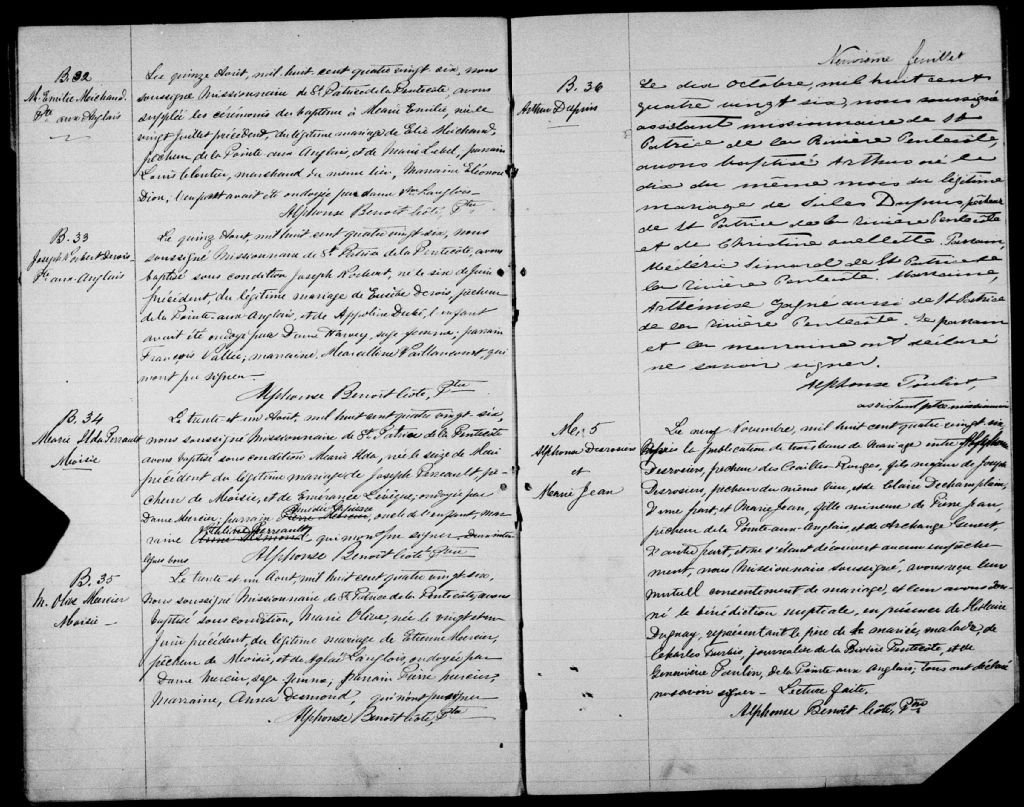 B. 32
M. Emilie Michaud.
Pte aux Anglais
Le quinze Août, mil huit cent quatre vingt six, nous
soussigné Missionnaire de St Patrice de la Pentecôte, avons
suppléé les cérémonies du baptême à Marie Emilie, née le
vingt Juillet précédent, du légitime mariage de Elie Michaud,
pêcheur de la Pointe aux Anglais, et de Marie Lebel, parrain
Louis Cloutier, marchand du même lieu, Marraine Eléonore
Dion, l'enfant avait été ondoyée par dame Langlois—
Alphonse Benoit Côté, Ptre
B. 33
Joseph Norbert Derois
Pte aux Anglais
Le quinze Août, mil huit cent quatre vingt six, nous
soussigné Missionnaire de St Patrice de la Pentecôte, avons
baptisé sous condition Joseph Norbert, né le six de Juin
précédent, du légitime mariage de Eusèbe Derois, pêcheur
de la Pointe-aux-Anglais, et de Appoline Dubé, l'enfant
avait été ondoyé par Dame Harvey, sage femme; parrain
François Vallée; marraine, Marcelline Vaillancourt, qui
n'ont pu signer—
Alphonse Benoit Côté, Ptre
B. 34
Marie Ilda Perrault
Moisie
Le trente et un Août, mil huit cent quatre vingt six,
nous soussigné Missionnaire de St Patrice de la Pentecôte
avons baptisé sous condition Marie Ilda, née le seize de Mai
précédent du légitime mariage de Joseph Perreault, pê-
cheur de Moisie, et de Emérance Lévêque; ondoyée par
Dame Mercier; parrain Pierre Mercier, oncle de l'enfant, mar-
raine Perreault Anna Desmond qui n'ont pu signer
bons
Alphonse Benoit Côté Ptre
B. 35
M. Olive Mercier
Moisie —
Le trente et un Aout mil huit cent quatre vingt six,
Nous soussigné Missionnaire de St Patrice de la Pentecôte, avons
baptisé sous condition, Marie Olive, née le vingt et un
Juin précédent, du légitime mariage de Etienne Mercier,
pêcheur de Moisie, et de Aglaé Langlois, ondoyée par
Dame Mercier, sage femme; parrain Pierre Mercier,
Marraine, Anna Desmond, qui n'ont pu signer
Alphonse Benoit Côté, Ptre
Neuvième feuillet
B. 36
Arthur Dupuis
Le dix Octobre, mil huit cent
quatre vingt six, nous soussigné
assistant missionnaire de St
Patrice de la Rivière Pentecôte,
avons baptisé Arthur né le
dix du même mois du légitime
mariage de Jules Dupuis pêcheur
de St Patrice de la rivière Pentecôte
et de Christine ouellette. Parrain,
Médéric Simard de St Patrice de
la rivière Pentecôte. Marraine,
Arthémise Gagné aussi de St Patrice
de la rivière Pentecôte. Le parrain
et la marraine ont déclaré
ne savoir signer.
Alphonse Pouliot,
assistant ptre missionnaire
M. 5
Alphonse Desrosiers
et
Marie Jean
Le neuf Novembre, mil huit cent quatre vingt six
Après la publication de trois bans de Mariage entre Alphonse
Desrosiers, pêcheur des Cailles-Rouges, fils majeur de Joseph
Desrosiers, pêcheur du même lieu, et de Claire Dechamplain,
d'une part, et Marie Jean, fille mineure de Pierre Jean,
pêcheur de la Pointe aux Anglais et de Archange Genest
d'autre part, et ne s'étant découvert aucun empêche-
ment, nous Missionnaire soussigné, avons reçu leur
mutuel consentement de mariage, et leur avons don-
né la bénédiction nuptiale, en présence de Hilaire
Dugnay, représentant le père de la mariée, malade, de
Charles Turbis, journalier de la Rivière Pentecôte, et de
Geneviève Poulin, de la Pointe aux Anglais; tous ont déclaré
ne savoir signer— Lecture faite.
Alphonse Benoit Côté, Ptre